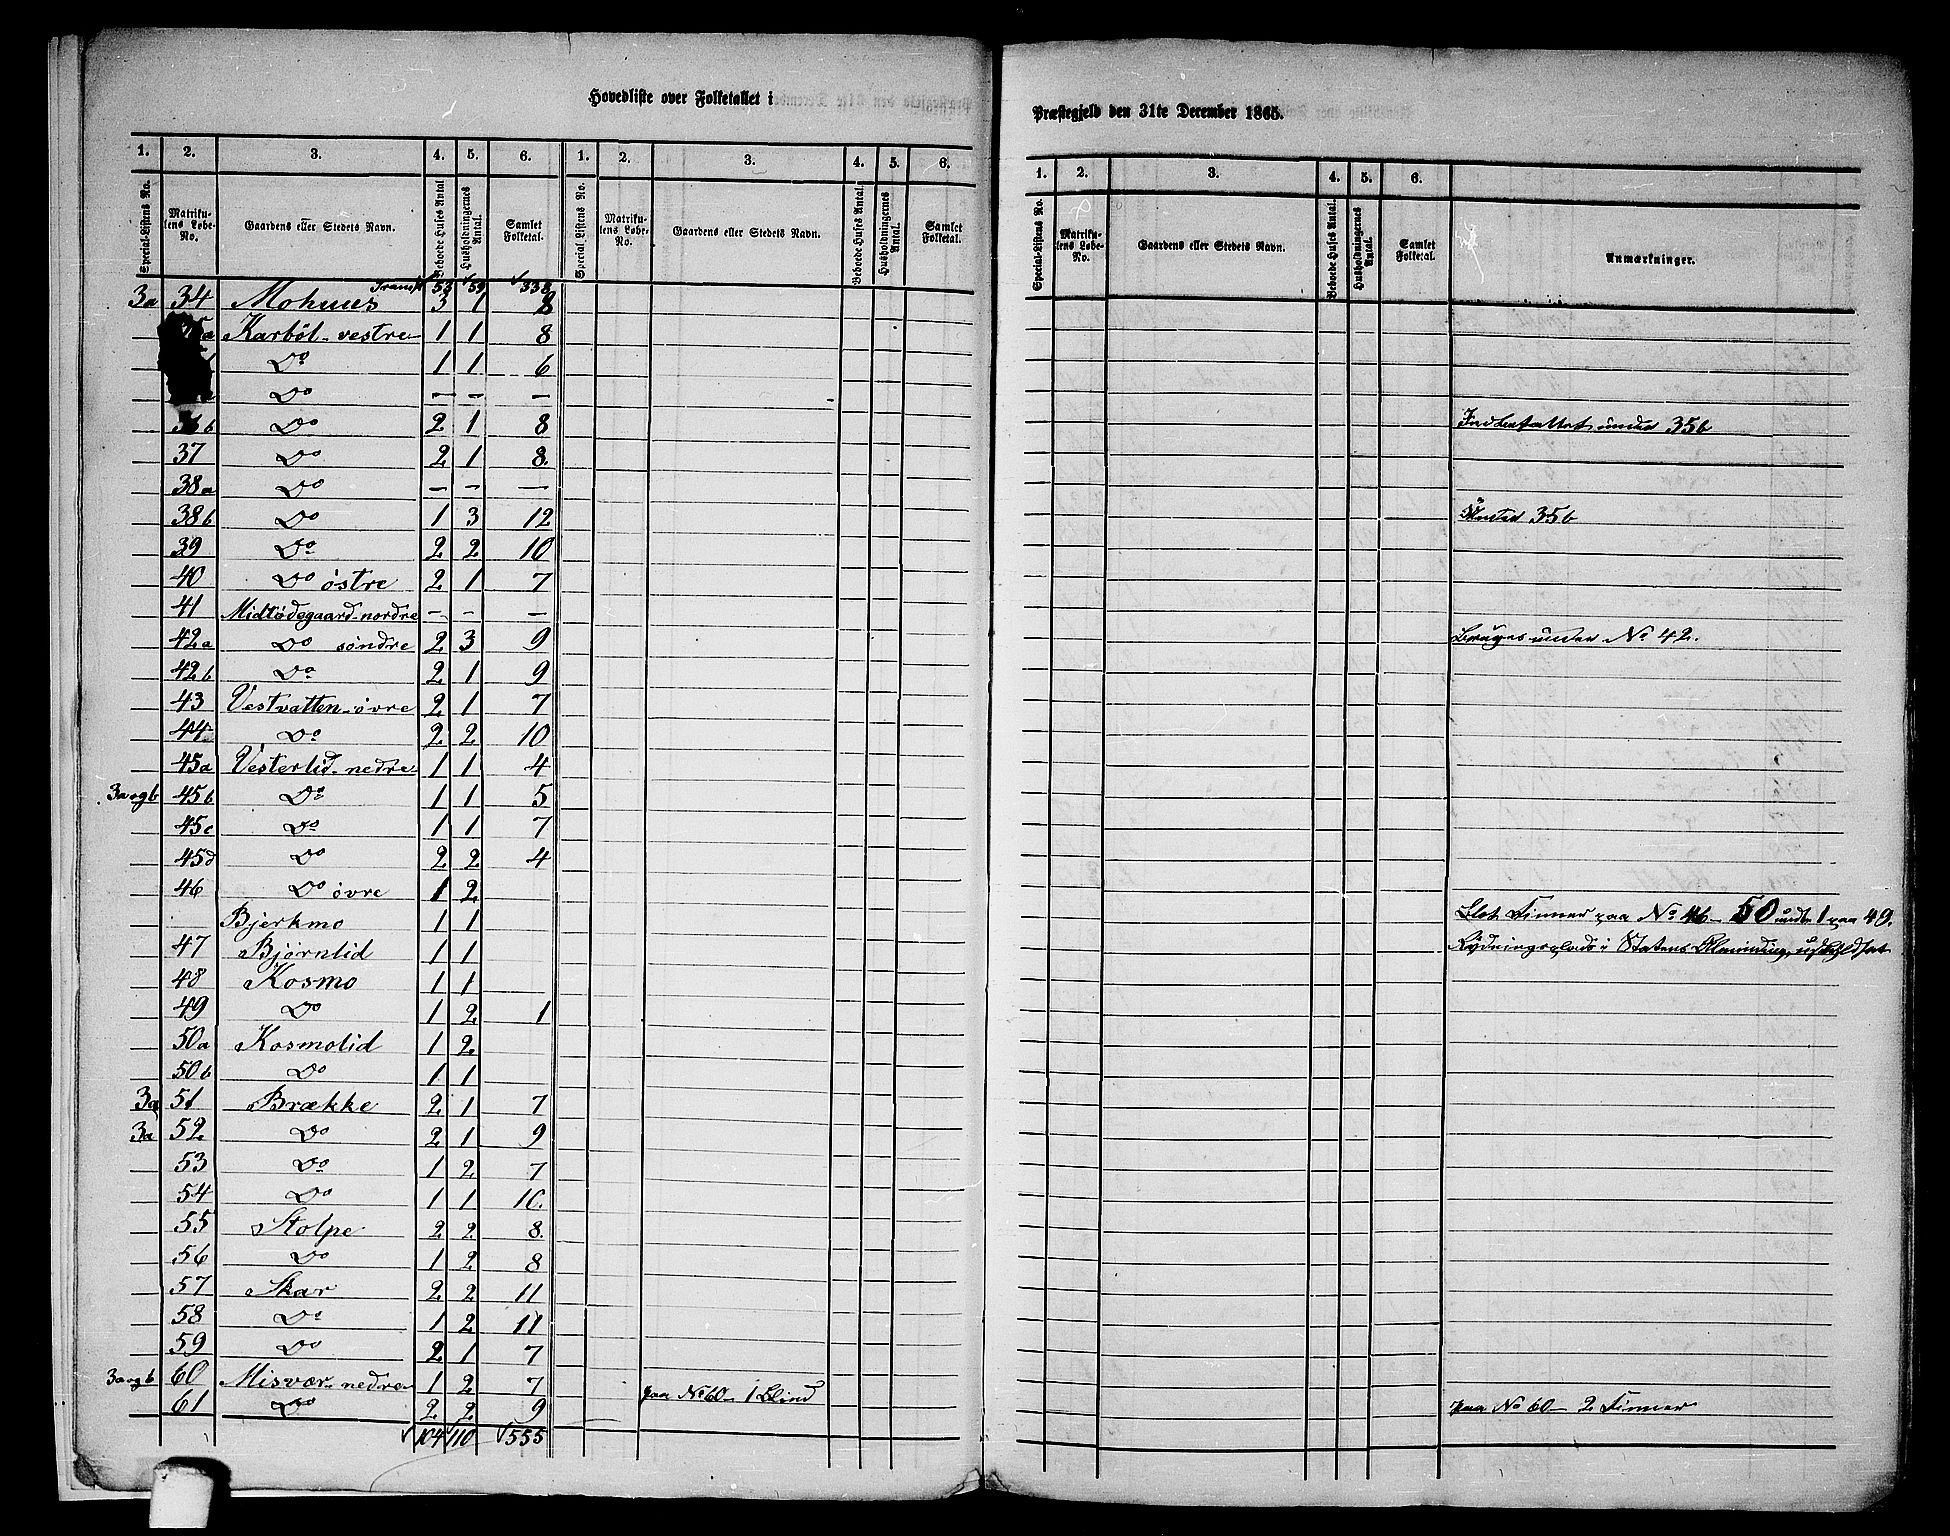 Hovedliste over Folketallet i
1. 2. 3. 4. 5. 6. 1. 2. 3. 4. 5. 6.
Special-Listens No. Matrikulens Løbe-No. Gaardens eller Stedets Navn. Beboede Huses Antal Husholdningernes Antal. Samlet Folketal. Special Listens No. Matrikulens Løbe-No. Gaardens eller Stedets Navn. Beboede Huses Antal. Husholdningernes Antal. Samlet Folketal.
Transp. 53 59 338
3a 34 Mohuus 3 1 8
a Karbøl vestre 1 1 8
Do 1 1 6
Do — — —
36b Do 2 1 8
37 Do 2 1 8.
38a Do — — —
38b Do 1 3 12
39 Do 2 2 10
40 Do østre 2 1 7
41 Midtødegaard nordre — — —
42a Do søndre 2 3 9
42b Do 2 1 9
43 Vestvatten øvre 2 1 7
44 Do 2 2 10
45a Vesterlid nedre 1 1 4
3a og b 45b Do 1 1 5
45c Do 1 1 7
45d Do 2 2 4
46 Do øvre 1 2
Bjerkmo 1 1
47 Bjørnlid 1 1
48 Kosmo 1 1
49 Do 1 2 1
50a Kosmolid 1 2
50b Do 1 1
3a 51 Brække 2 1 7
3a 52 Do 2 1 9
53 Do 1 2 7
54 Do 1 1 10.
55 Stolpe 2 2 8.
56 Do 1 2 8
57 Skar 2 2 11
58 Do 1 2 11
59 Do 2 1 7
3a og b 60 Misvær nedre 1 2 7 paa No 60 - 1 Blind
61 Do 2 2 9
104 110 555
Præstegjeld den 31te December 1865.
1. 2. 3. 4. 5. 6.
Special-Listens No. Matrikulens Løbe-No. Gaardens eller Stedets Navn. Beboede Huses Antal. Husholdningernes Antal. Samlet Folketal. Anmærkninger.
Indbefattet under 35b
Under 35b
Bruges under No 42.
Blot Finner paa No 46 - 50 undt. 1 paa 49.
Rydningsplads i Statens Alminding,
paa No 60 - 2 Finner